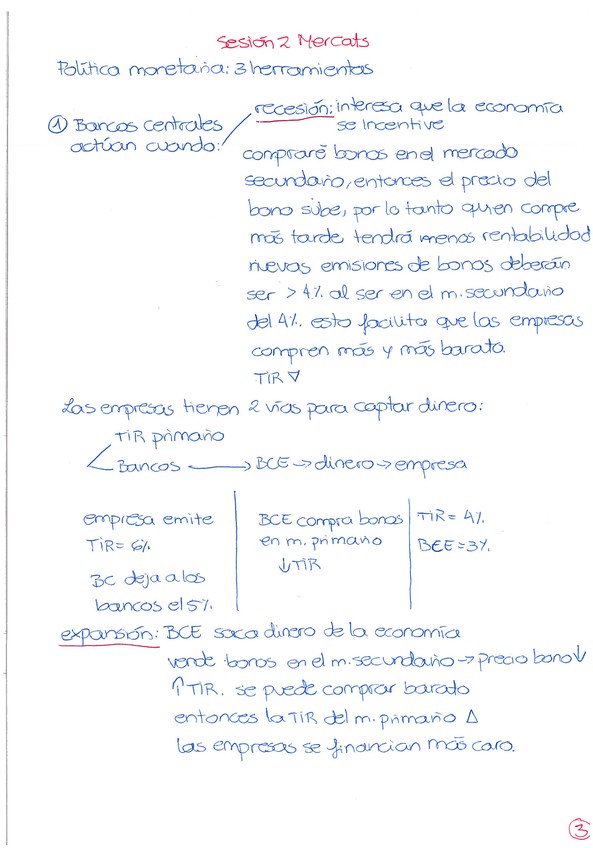 Sesión 2 Mercats
Política monetaria: 3 herramientas
① Bancos centrales
actúan cuando:
recesión: interesa que la economía
se incentive
compraré bonos en el mercado
secundario, entonces el precio del
bono sube, por lo tanto quien compre
más tarde tendrá menos rentabilidad
nuevas emisiones de bonos deberán
ser > 4% al ser en el m. secundario
del 4%. esto facilita que las empresas
compren más y más barato.
TIR ∇
Las empresas tienen 2 vías para captar dinero:
TIR primario
Bancos → BCE → dinero → empresa
empresa emite
TIR = 6%
BC deja a los
bancos el 5%.
BCE compra bonos
en m. primario
↓TIR
TIR = 4%.
BCE = 3%.
expansión: BCE saca dinero de la economía
vende bonos en el m. secundario → precio bono ↓
↑ TIR. se puede comprar barato
entonces la TIR del m. primario Δ
las empresas se financian más caro.
③